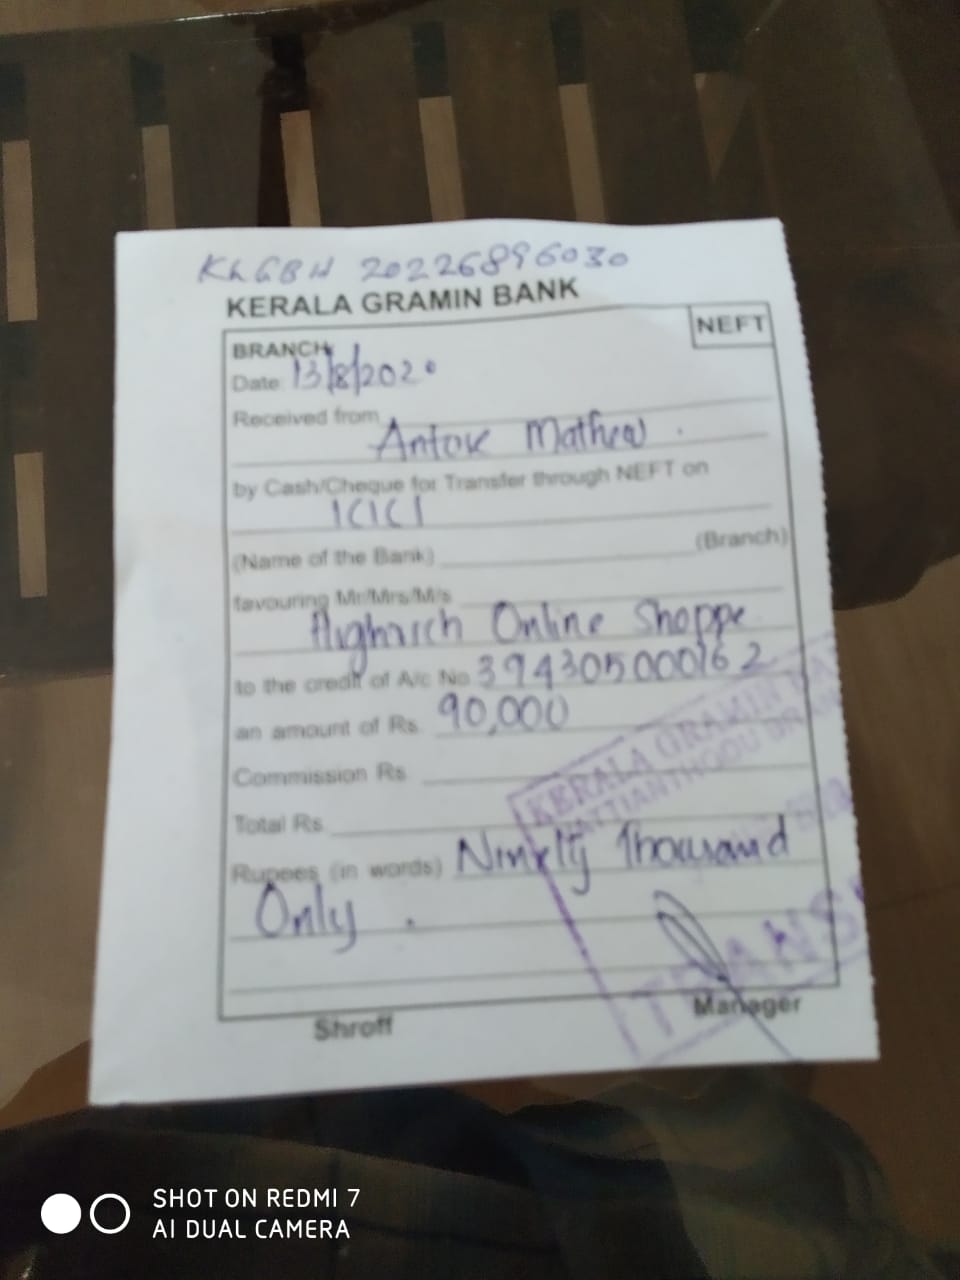 KLGBH 20226896030
KERALA GRAMIN BANK
NEFT
BRANCH
Date: 13/8/2020
Received from
Mathew .
by Cash/Cheque for Transfer through NEFT on
ICICI
(Branch)
(Name of the Bank)
favouring Mr/Mrs/M/s
Online Shoppe
to the credit of A/c No 394305000162
an amount of Rs. 90,000
Commission Rs.
Total Rs.
Rupees (in words) Ninety Thousand
Only .
KERALA GRAMIN
Shroff
Manager
SHOT ON REDMI 7
AI DUAL CAMERA